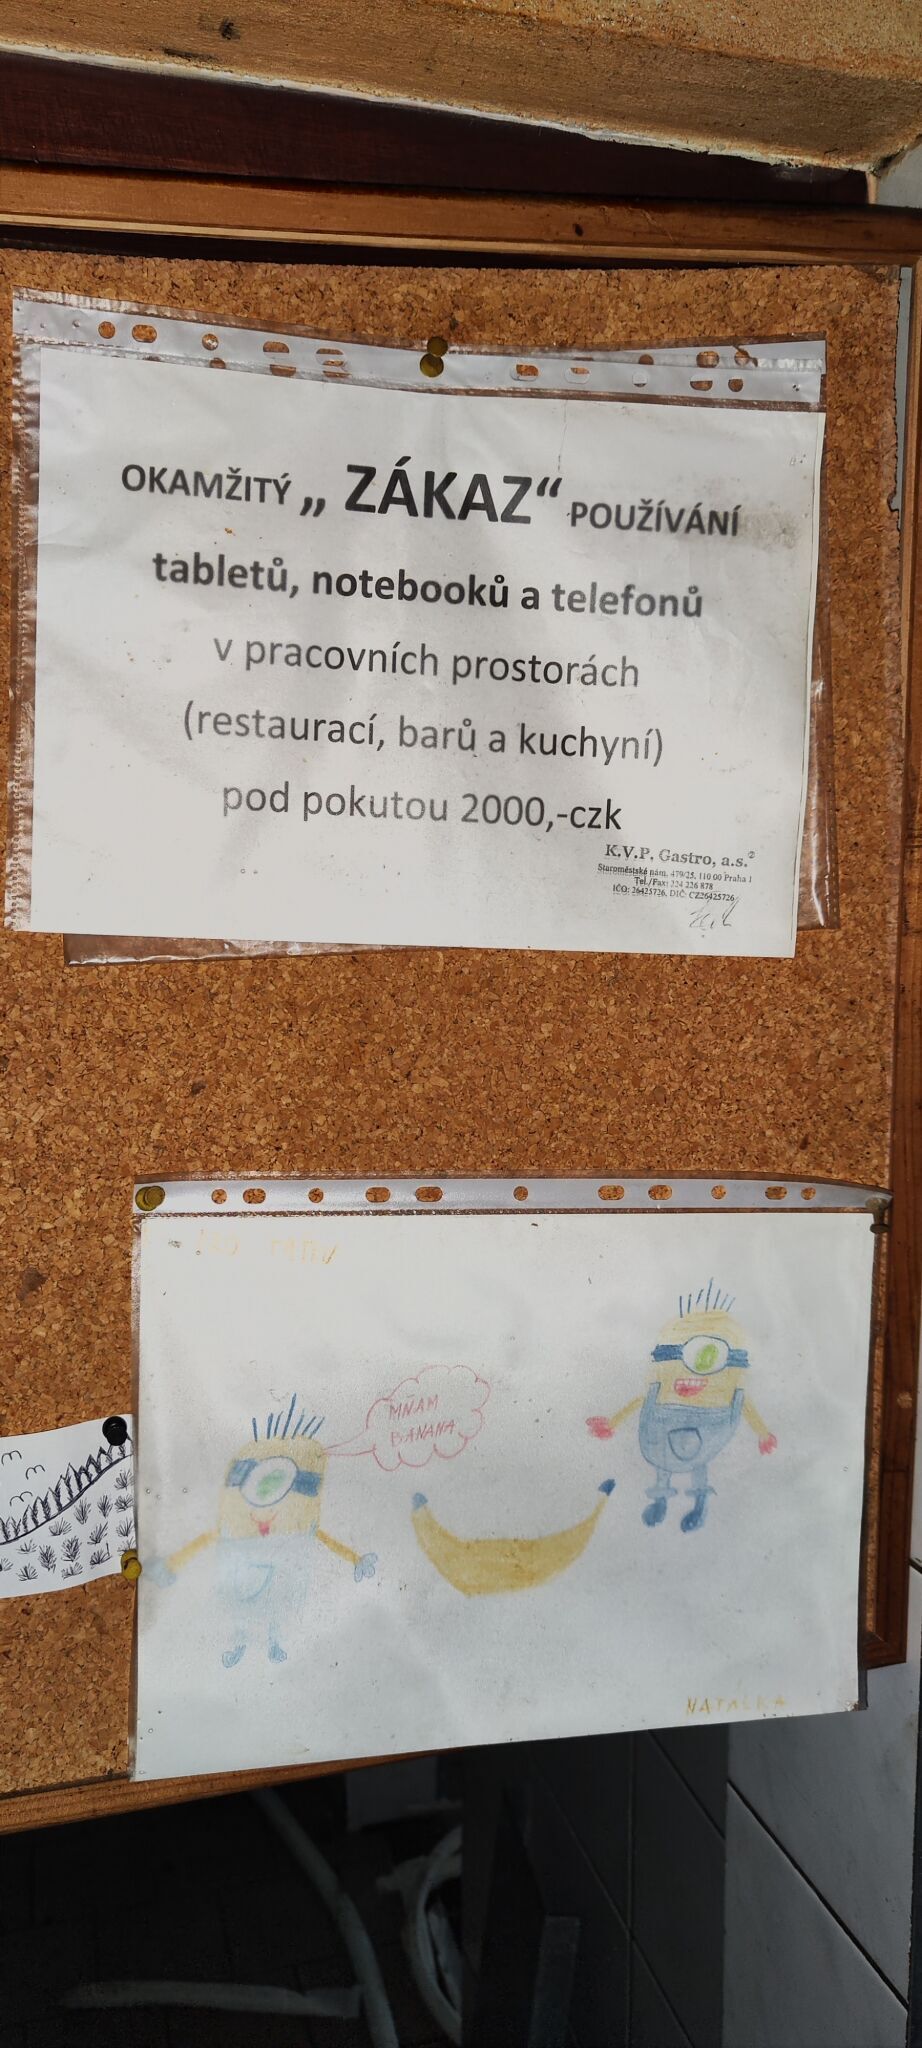 OKAMŽITÝ „ ZÁKAZ“ POUŽÍVÁNÍ
tabletů, notebooků a telefonů
v pracovních prostorách
(restaurací, barů a kuchyní)
pod pokutou 2000,-czk
K.V.P. Gastro, a.s.
Staroměstské nám. 479/25, 110 00 Praha 1
Tel./Fax: 224 226 878
IČO: 26425726, DIČ: CZ26425726
MŇAM
BANANA
NATÁLKA